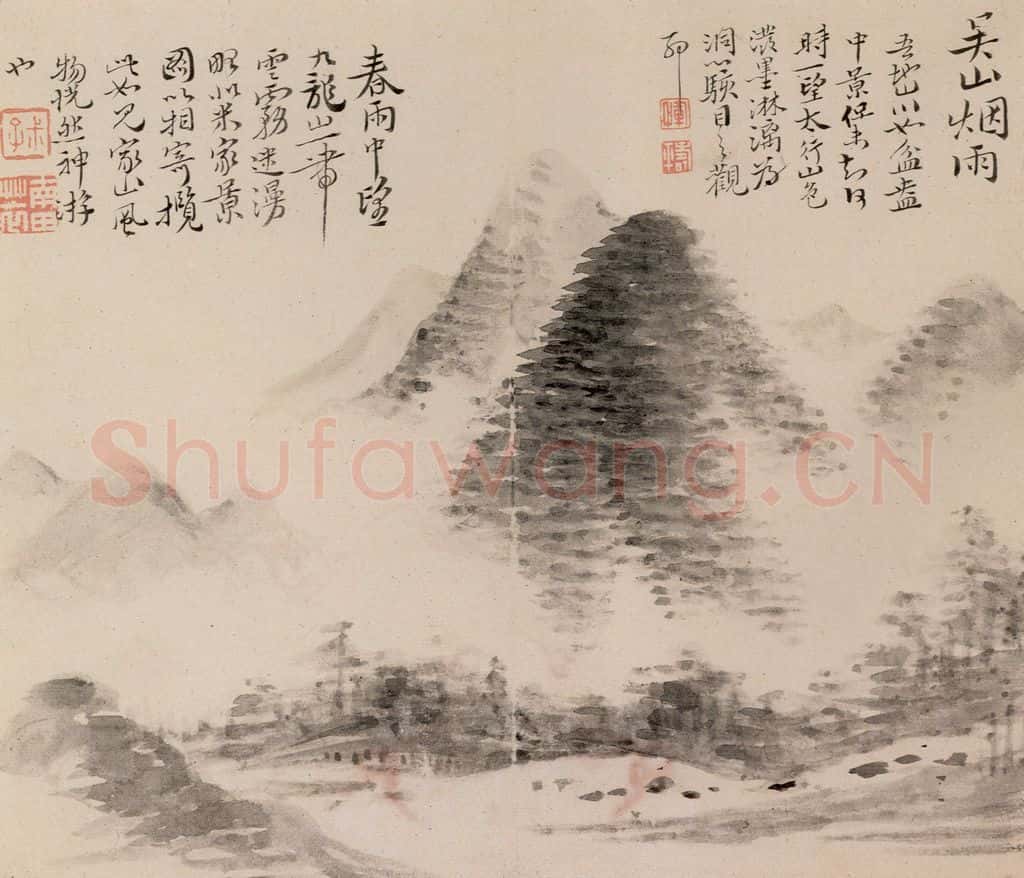 吴山烟雨
吾地山如盆盎
中景 未知何
時一望太行山色
潑墨淋漓為
洞心駭目之觀
耶
春雨中望
九龍山一帶
雲霧迷漫
略似米家景
圖以相寄攬
此如見家山風
物恍然神游
也
Shufawang.CN